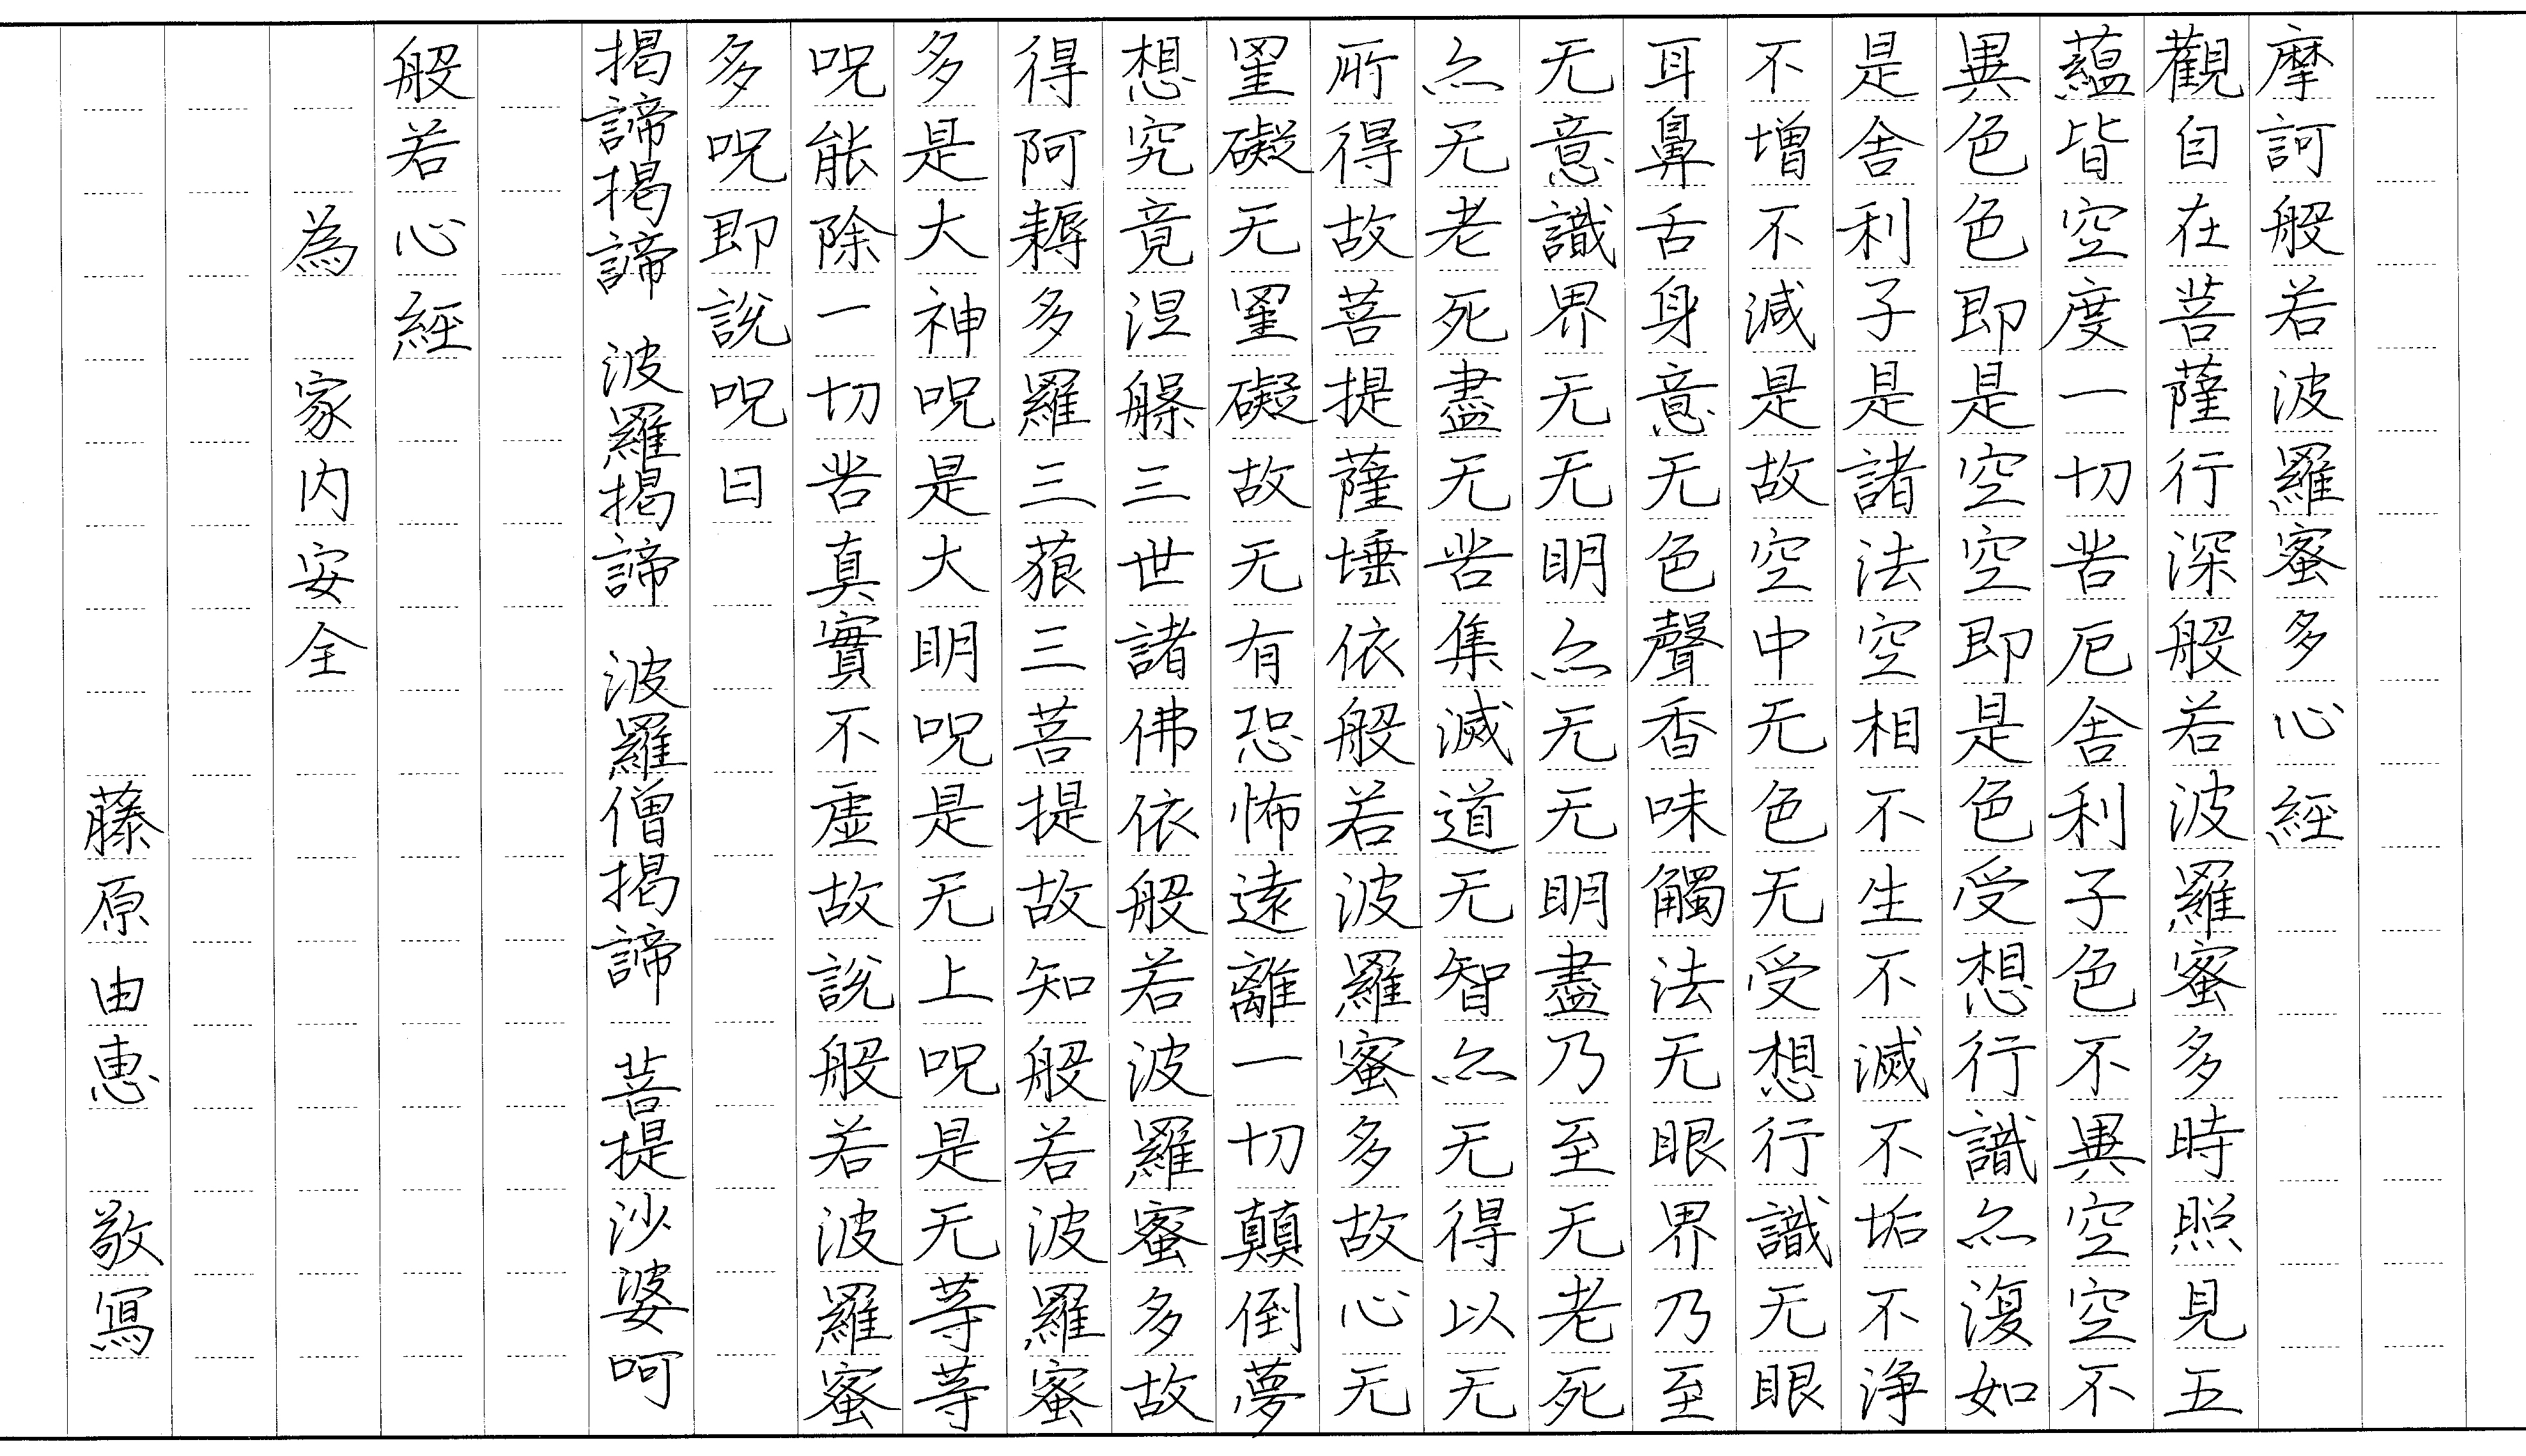 摩訶般若波羅蜜多心經
觀自在菩薩行深般若波羅蜜多時照見五
蘊皆空度一切苦厄舎利子色不異空空不
異色色即是空空即是色受想行識亦復如
是舎利子是諸法空相不生不滅不垢不浄
不增不減是故空中无色无受想行識无眼
耳鼻舌身意无色聲香味觸法无眼界乃至
无意識界无无明亦无无明盡乃至无老死
亦无老死盡无苦集滅道无智亦无得以无
所得故菩提薩埵依般若波羅蜜多故心无
罣礙无罣礙故无有恐怖遠離一切顛倒夢
想究竟涅槃三世諸佛依般若波羅蜜多故
得阿耨多羅三藐三菩提故知般若波羅蜜
多是大神呪是大明呪是无上呪是无等等
呪能除一切苦真實不虛故説般若波羅蜜
多呪即説呪曰
揭諦揭諦 波羅揭諦 波羅僧揭諦 菩提沙婆呵
般若心經
為 家内安全
藤原由恵 敬写